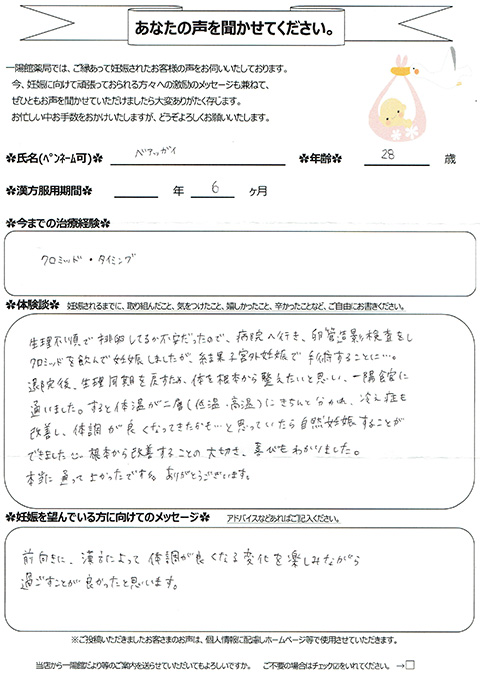 あなたの声を聞かせてください。
一陽館薬局では、ご縁あって妊娠されたお客様の声をお伺いいたしております。
今、妊娠に向けて頑張っておられる方々への激励のメッセージも兼ねて、
ぜひともお声を聞かせていただけましたら大変ありがたく存じます。
お忙しい中お手数をおかけいたしますが、どうぞよろしくお願いいたします。
✽氏名(ペンネーム可)✽ ベアッガイ ✽年齢✽ 28 歳
✽漢方服用期間✽ 年 6 ヶ月
✽今までの治療経験✽
クロミッド・タイミング
✽体験談✽ 妊娠されるまでに、取り組んだこと、気をつけたこと、嬉しかったこと、辛かったことなど、ご自由にお書きください。
生理不順で排卵してるか不安だったので、病院へ行き、卵管造影検査をし
クロミッドを飲んで妊娠しましたが、結果子宮外妊娠で手術することに…。
退院後、生理周期を戻すため、体を根本から整えたいと思い、一陽館に
通いました。すると体温が二層(低温・高温)にきちんと分かれ、冷え症も
改善し、体調が良くなってきたかも…と思っていたら自然妊娠することが
できました 根本から改善することの大切さ、喜びもわかりました。
本当に通ってよかったです。ありがとうございます。
✽妊娠を望んでいる方に向けてのメッセージ✽ アドバイスなどあればご記入ください。
前向きに、漢方によって体調が良くなる変化を楽しみながら
過ごすことが良かったと思います。
※ご投稿いただきましたお客さまのお声は、個人情報に配慮しホームページ等で使用させていただきます。
当店から一陽館だより等のご案内を送らせていただいてもよろしいですか。 ご不要の場合はチェック☑をいれてください。 →□